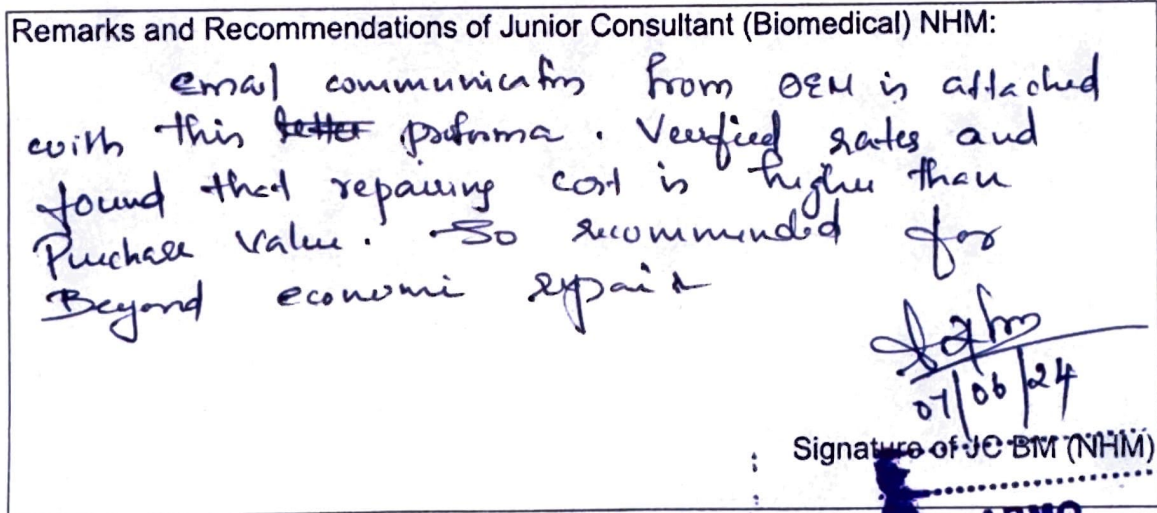 Remarks and Recommendations of Junior Consultant (Biomedical) NHM:
email communication from OEM is attached
with this letter proforma. Verified rates and
found that repairing cost is higher than
Purchase value. So recommended for
Beyond economi repair
07/06/24
Signature of JC BM (NHM)